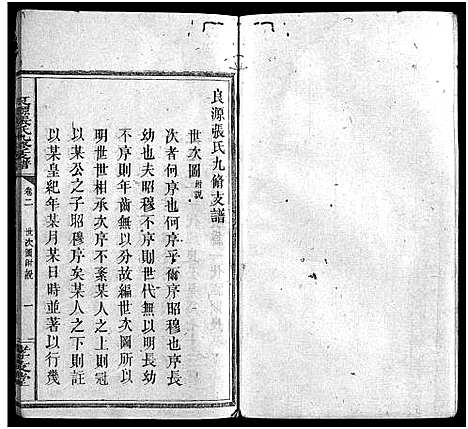 良源張氏九脩支譜
世次圖附説
次者何序也何序乎爾序昭穆也序長
幼也夫昭穆不序則世代無以明長幼
不序則年齒無以分故編世次圖所以
明世世相承次序不紊某人之上則冠
以某公之子昭穆序矣某人之下則註
以某皇紀年某月某日時並著以行幾
張氏九脩支譜
卷二
世次圖附説
一